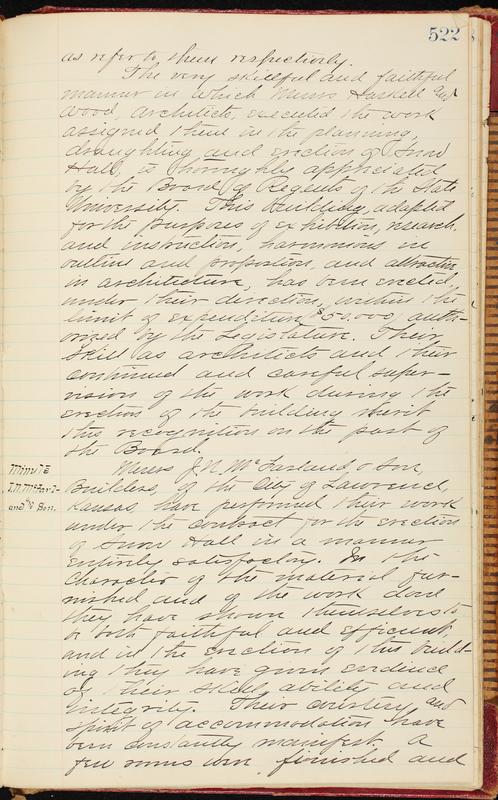 522
as refer to them respectively.
The very skillful and faithful
manner in which Messrs Haskell and
Wood, Architects, executed the work
assigned them in the planning,
draughting and erection of Snow
Hall, is thoroughly appreciated
by the Board of Regents of the State
University. This building, adapted
for the purposes of exhibition, research
and instruction, harmonious in
outline and proportion, and attractive
in architecture, has been erected,
under their direction, within the
limit of expenditure, $50.000, auth-
orized by the Legislature. Their
skill as architects and their
continued and careful super-
vision of the work during the
erection of the building merit
this recognition on the part of
the Board.
Minute
J.N. McFarl-
and & Son.
Messrs J.N. McFarland & Son,
Builders, of the City of Lawrence,
Kansas have performed their work
under the contract for the erection
of Snow Hall in a manner
entirely satisfactory. In the
character of the material fur-
nished and of the work done
they have shown themselves to
be both faithful and efficient,
and in the erection of this build-
ing they have given evidence
of their skill, ability and
integrity. Their courtesy and
spirit of accommodation have
been constantly manifest. A
few rooms were finished and